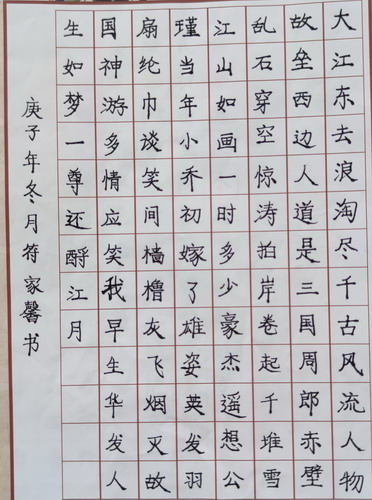 大江东去浪淘尽千古风流人物
故垒西边人道是三国周郎赤壁
乱石穿空惊涛拍岸卷起千堆雪
江山如画一时多少豪杰遥想公
瑾当年小乔初嫁了雄姿英发羽
扇纶巾谈笑间樯橹灰飞烟灭故
国神游多情应笑我早生华发人
生如梦一尊还酹江月
庚子年冬月符家馨书